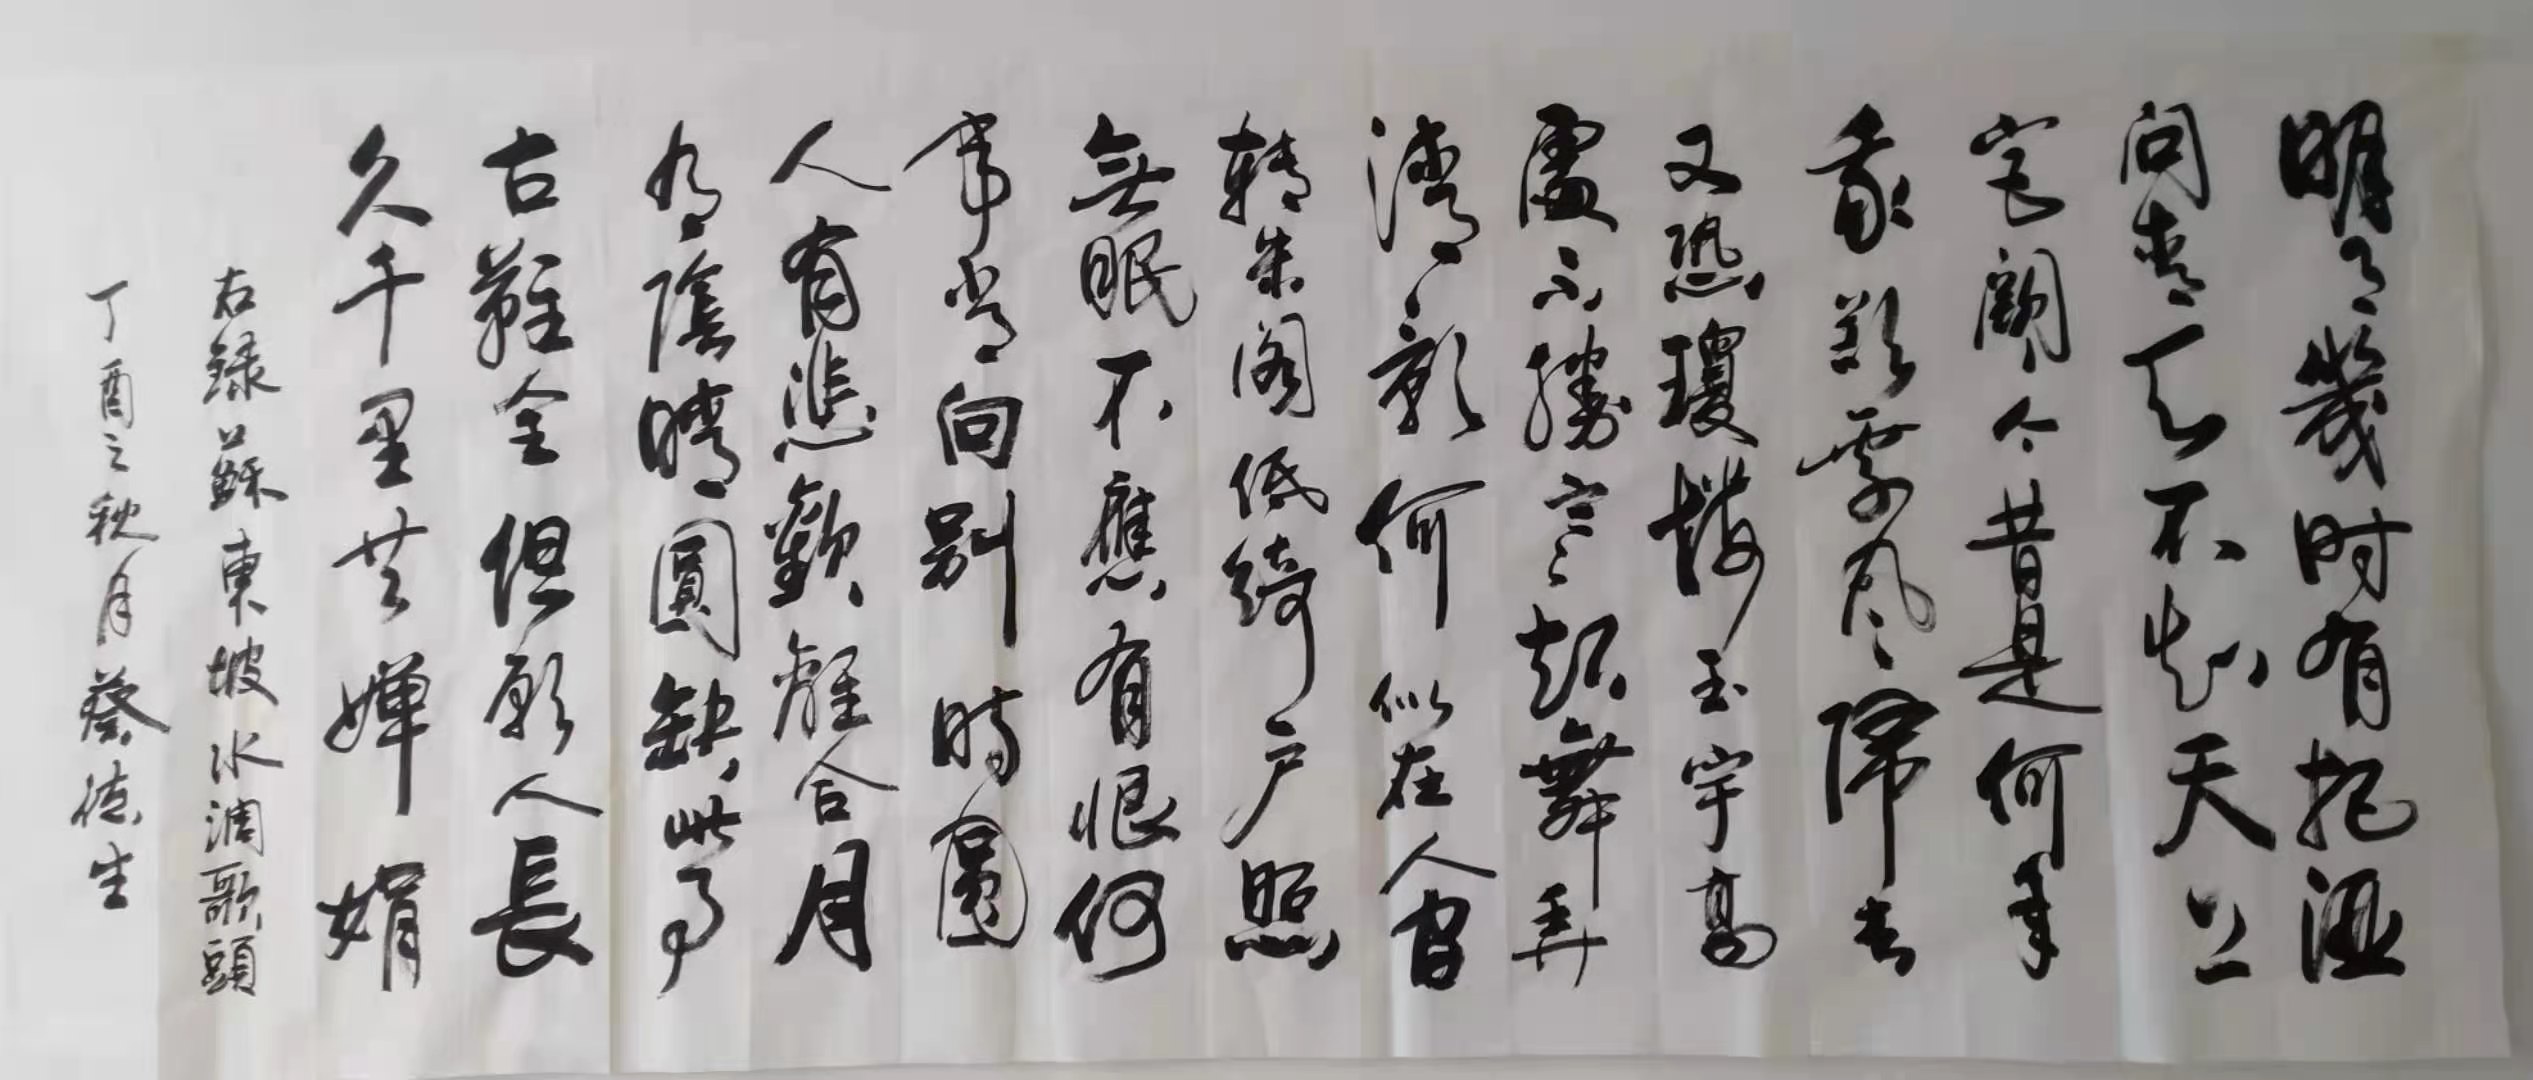 明月幾时有把酒
问青天不知天上
宫阙今昔是何年
我欲乘风歸去
又恐瓊楼玉宇高
處不勝寒起舞弄
清影何似在人间
轉朱阁低绮户照
無眠不應有恨何
事常向别時圓
人有悲歡離合月
有陰晴圓缺此事
古難全但願人長
久千里共嬋娟
右録蘇東坡水调歌頭
丁酉之秋月蔡德生